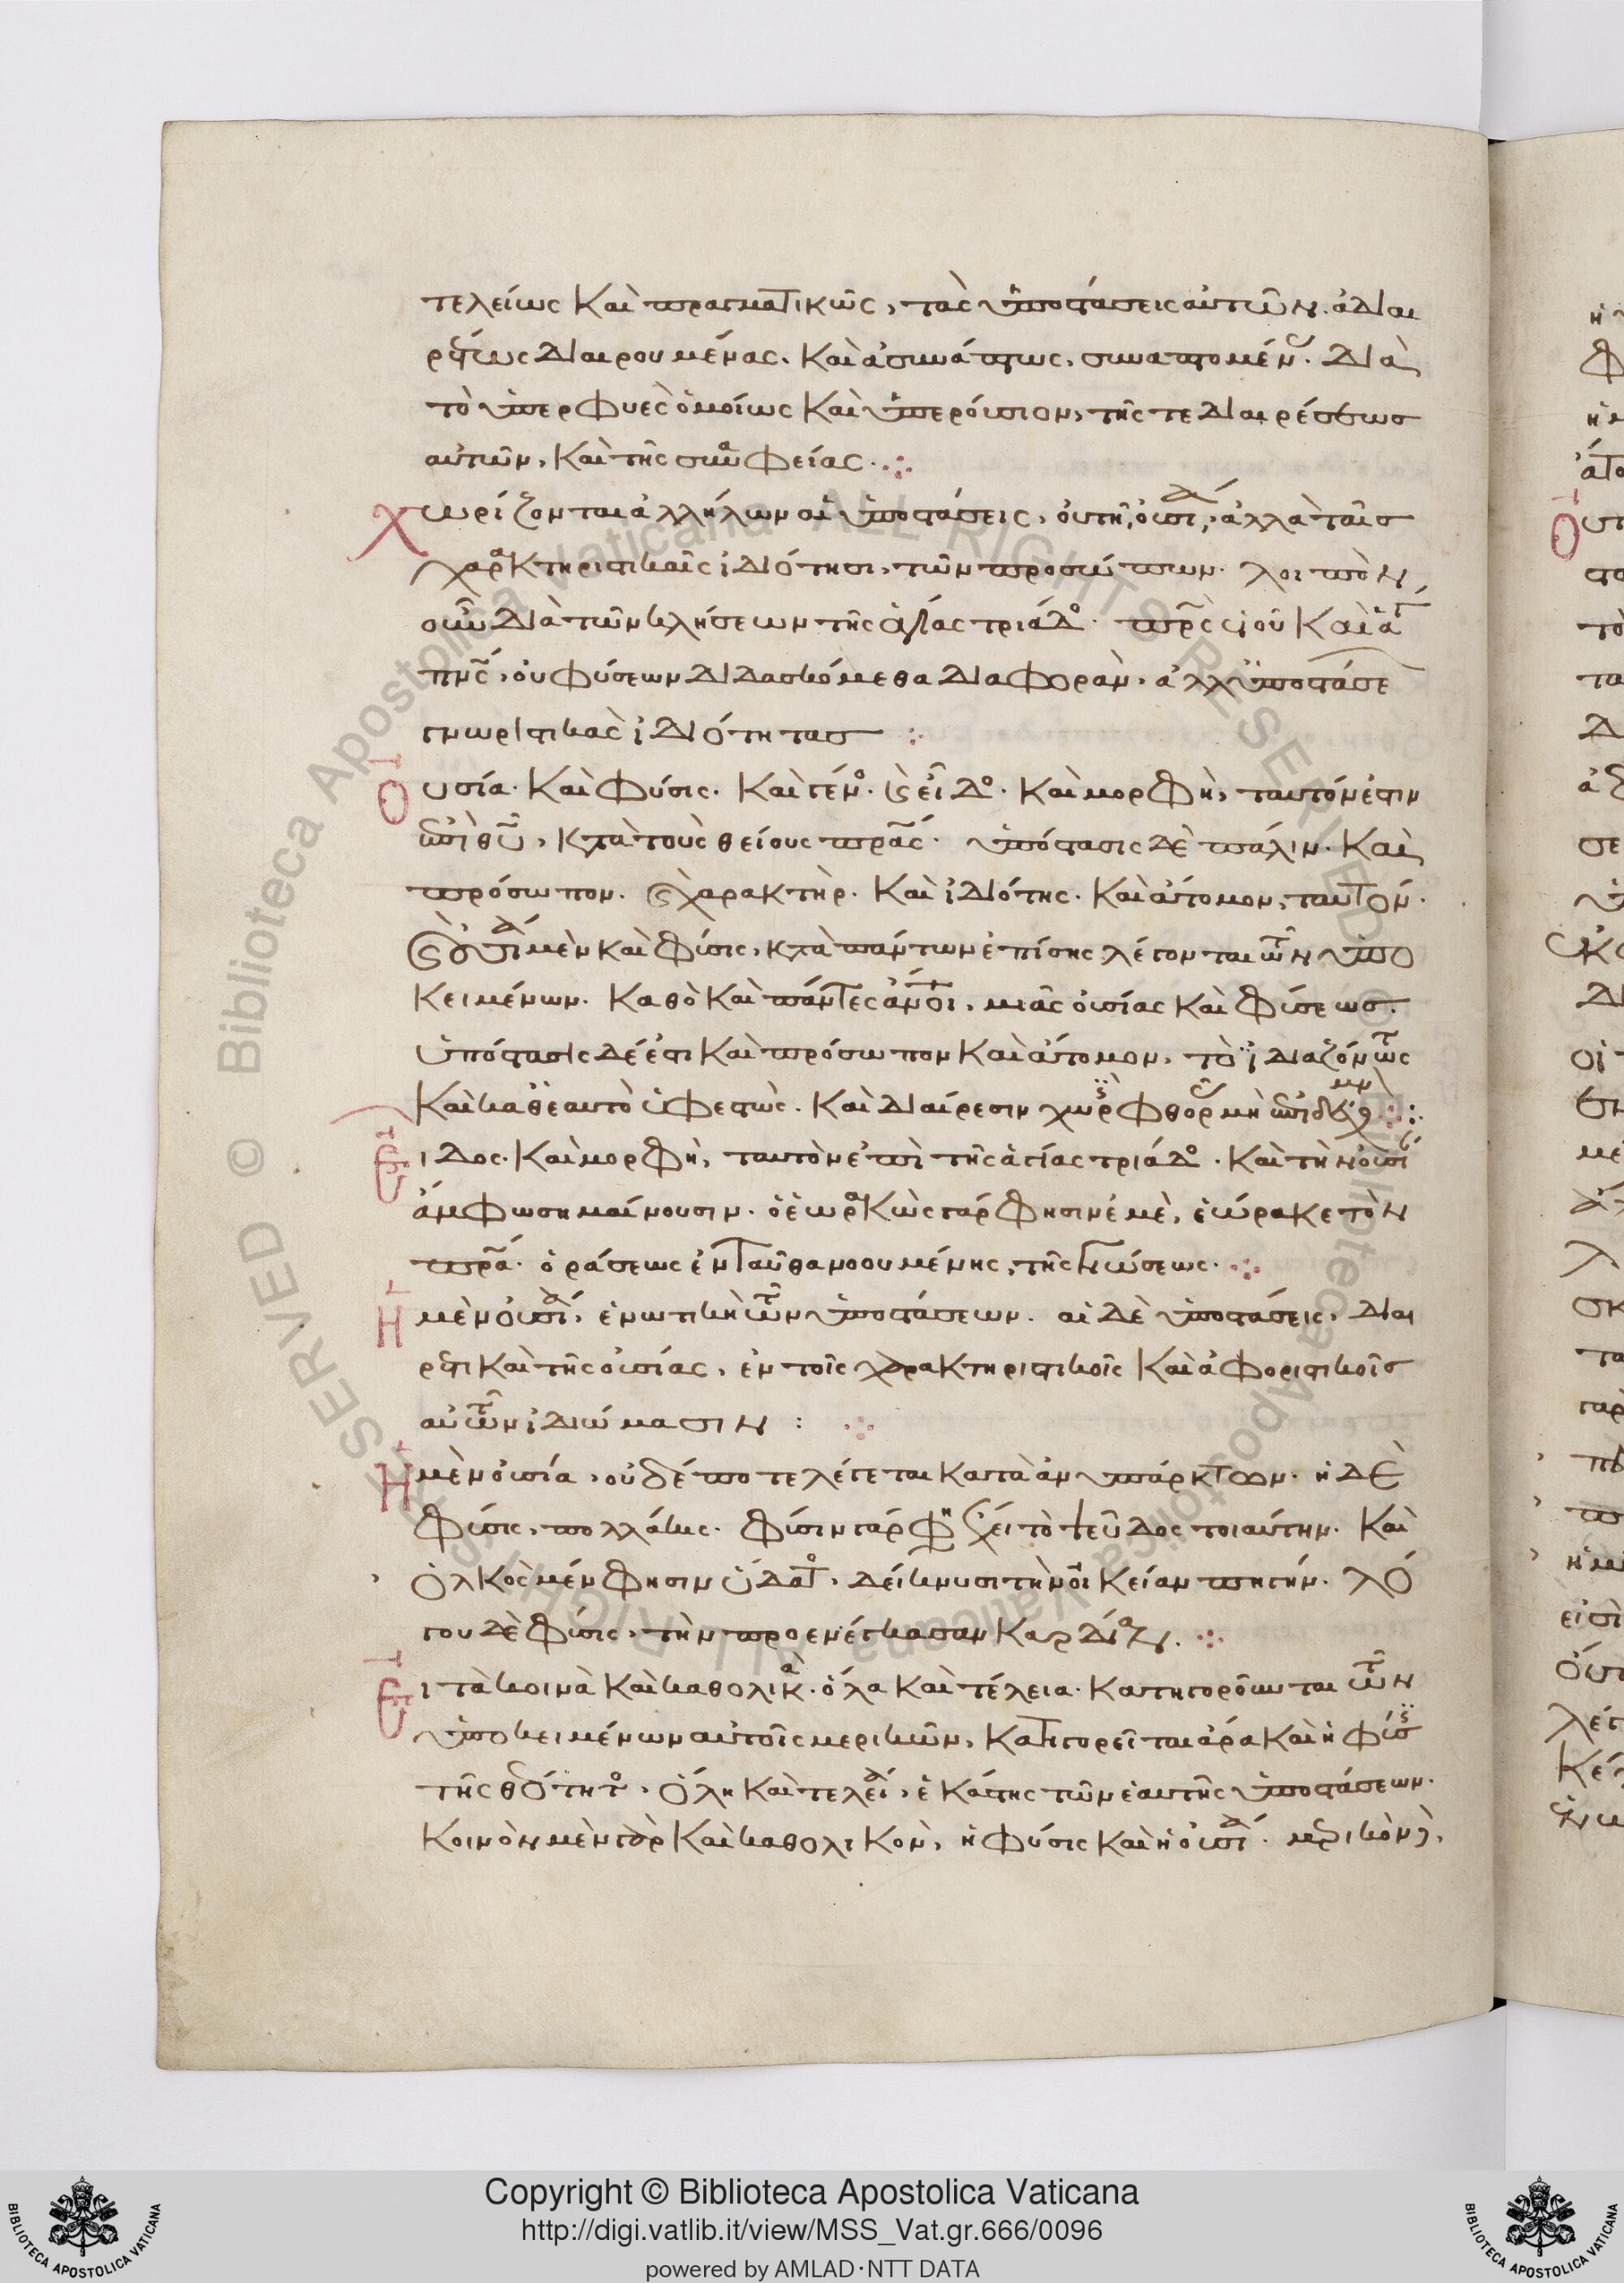 τελείως καὶ πραγματικῶς, τὰς ὑποστάσεις αὐτῶν. ἀδιαι
ρέτως διαιρουμένας. καὶ ἀσυνάπτως, συναπτομέν. διὰ
τὸ ὑπερφυὲς ὁμοίως καὶ ὑπερούσιον, τῆς τε διαιρέσεως
αὐτῶν, καὶ τῆς συναφείας.
Χωρίζονται ἀλλήλων αἱ ὑποστάσεις, οὐ τῆ οὐσία, ἀλλὰ ταῖς
χαρακτηριστικαῖς ἰδιότησι, τῶν προσώπων. λοιπὸν
οὖν διὰ τῶν κλήσεων τῆς ἁγίας τριάδο. πρς υἱοῦ καὶ ἁ
πνς, οὐ φύσεων διδασκόμεθα διαφορὰν, ἀλλ ὑποστάσε
γνωριστικὰς ἰδιότητας
Οὐσία. καὶ φύσις. καὶ γένο. καὶ εἶδο. καὶ μορφὴ, ταυτόν ἐστιν
ἐπὶ θυ, κατὰ τοὺς θείους πρας. ὑπόστασις δὲ πάλιν. καὶ
πρόσωπον. καὶ χαρακτὴρ. καὶ ἰδιότης. καὶ ἄτομον, ταυτόν.
καὶ οὐσία μὲν καὶ φύσις, κατὰ πάντων ἐπίσης λέγονται τῶν ὑπο
κειμένων. καθὸ καὶ πάντες ἄνοι, μιᾶς οὐσίας καὶ φύσεως.
ὑπόστασις δέ ἐστι καὶ πρόσωπον καὶ ἄτομον, τὸ ἰδιαζόντως
καὶ καθ ἑαυτὸ ὑφεστὼς. καὶ διαίρεσιν χωρὶς φθορᾶς μὴ
Εἶδος. καὶ μορφὴ, ταυτὸν ἐπὶ τῆς ἁγίας τριάδο. καὶ τὴν οὐσί
ἄμφω σημαίνουσιν. ὁ ἑωρακὼς γάρ φησιν ἐμὲ, ἑώρακε τὸν
πρα. ὁράσεως ἐνταῦθα νοουμένης, τῆς γνώσεως.
Ἡ μὲν οὐσία, ἑνωτικὴ τῶν ὑποστάσεων. αἱ δὲ ὑποστάσεις, διαι
ρετικαὶ τῆς οὐσίας, ἐν τοῖς χαρακτηριστικοῖς καὶ ἀφοριστικοῖς
αὐτῶν ἰδιώμασιν:
Ἡ μὲν οὐσία, οὐδέποτε λέγεται κατὰ ἀνυπάρκτων. ἡ δὲ
φύσις, πολλάκις. φύσιν γάρ φη ἔχει τὸ ψεῦδος τοιαύτην. καὶ
ὁλκὸς μέν φησιν ὕδατο, δείκνυσι τὴν οἰκείαν πηγήν. λό
γου δὲ φύσις, τὴν προενέγκασαν καρδίαν.
Εἰ τὰ κοινὰ καὶ καθολικὰ. ὅλα καὶ τέλεια. κατηγοροῦνται τῶν
ὑποκειμένων αὐτοῖς μερικῶν, κατηγορεῖται ἄρα καὶ ἡ φύσις
τῆς θεότητο, ὅλη καὶ τελεία, ἑκάστης τῶν ἑαυτῆς ὑποστάσεων.
κοινὸν μὲν γὰρ καὶ καθολικὸν, ἡ φύσις καὶ ἡ οὐσία. μερικὸν δὲ,
Copyright © Biblioteca Apostolica Vaticana
http://digi.vatlib.it/view/MSS_Vat.gr.666/0096
powered by AMLAD·NTT DATA